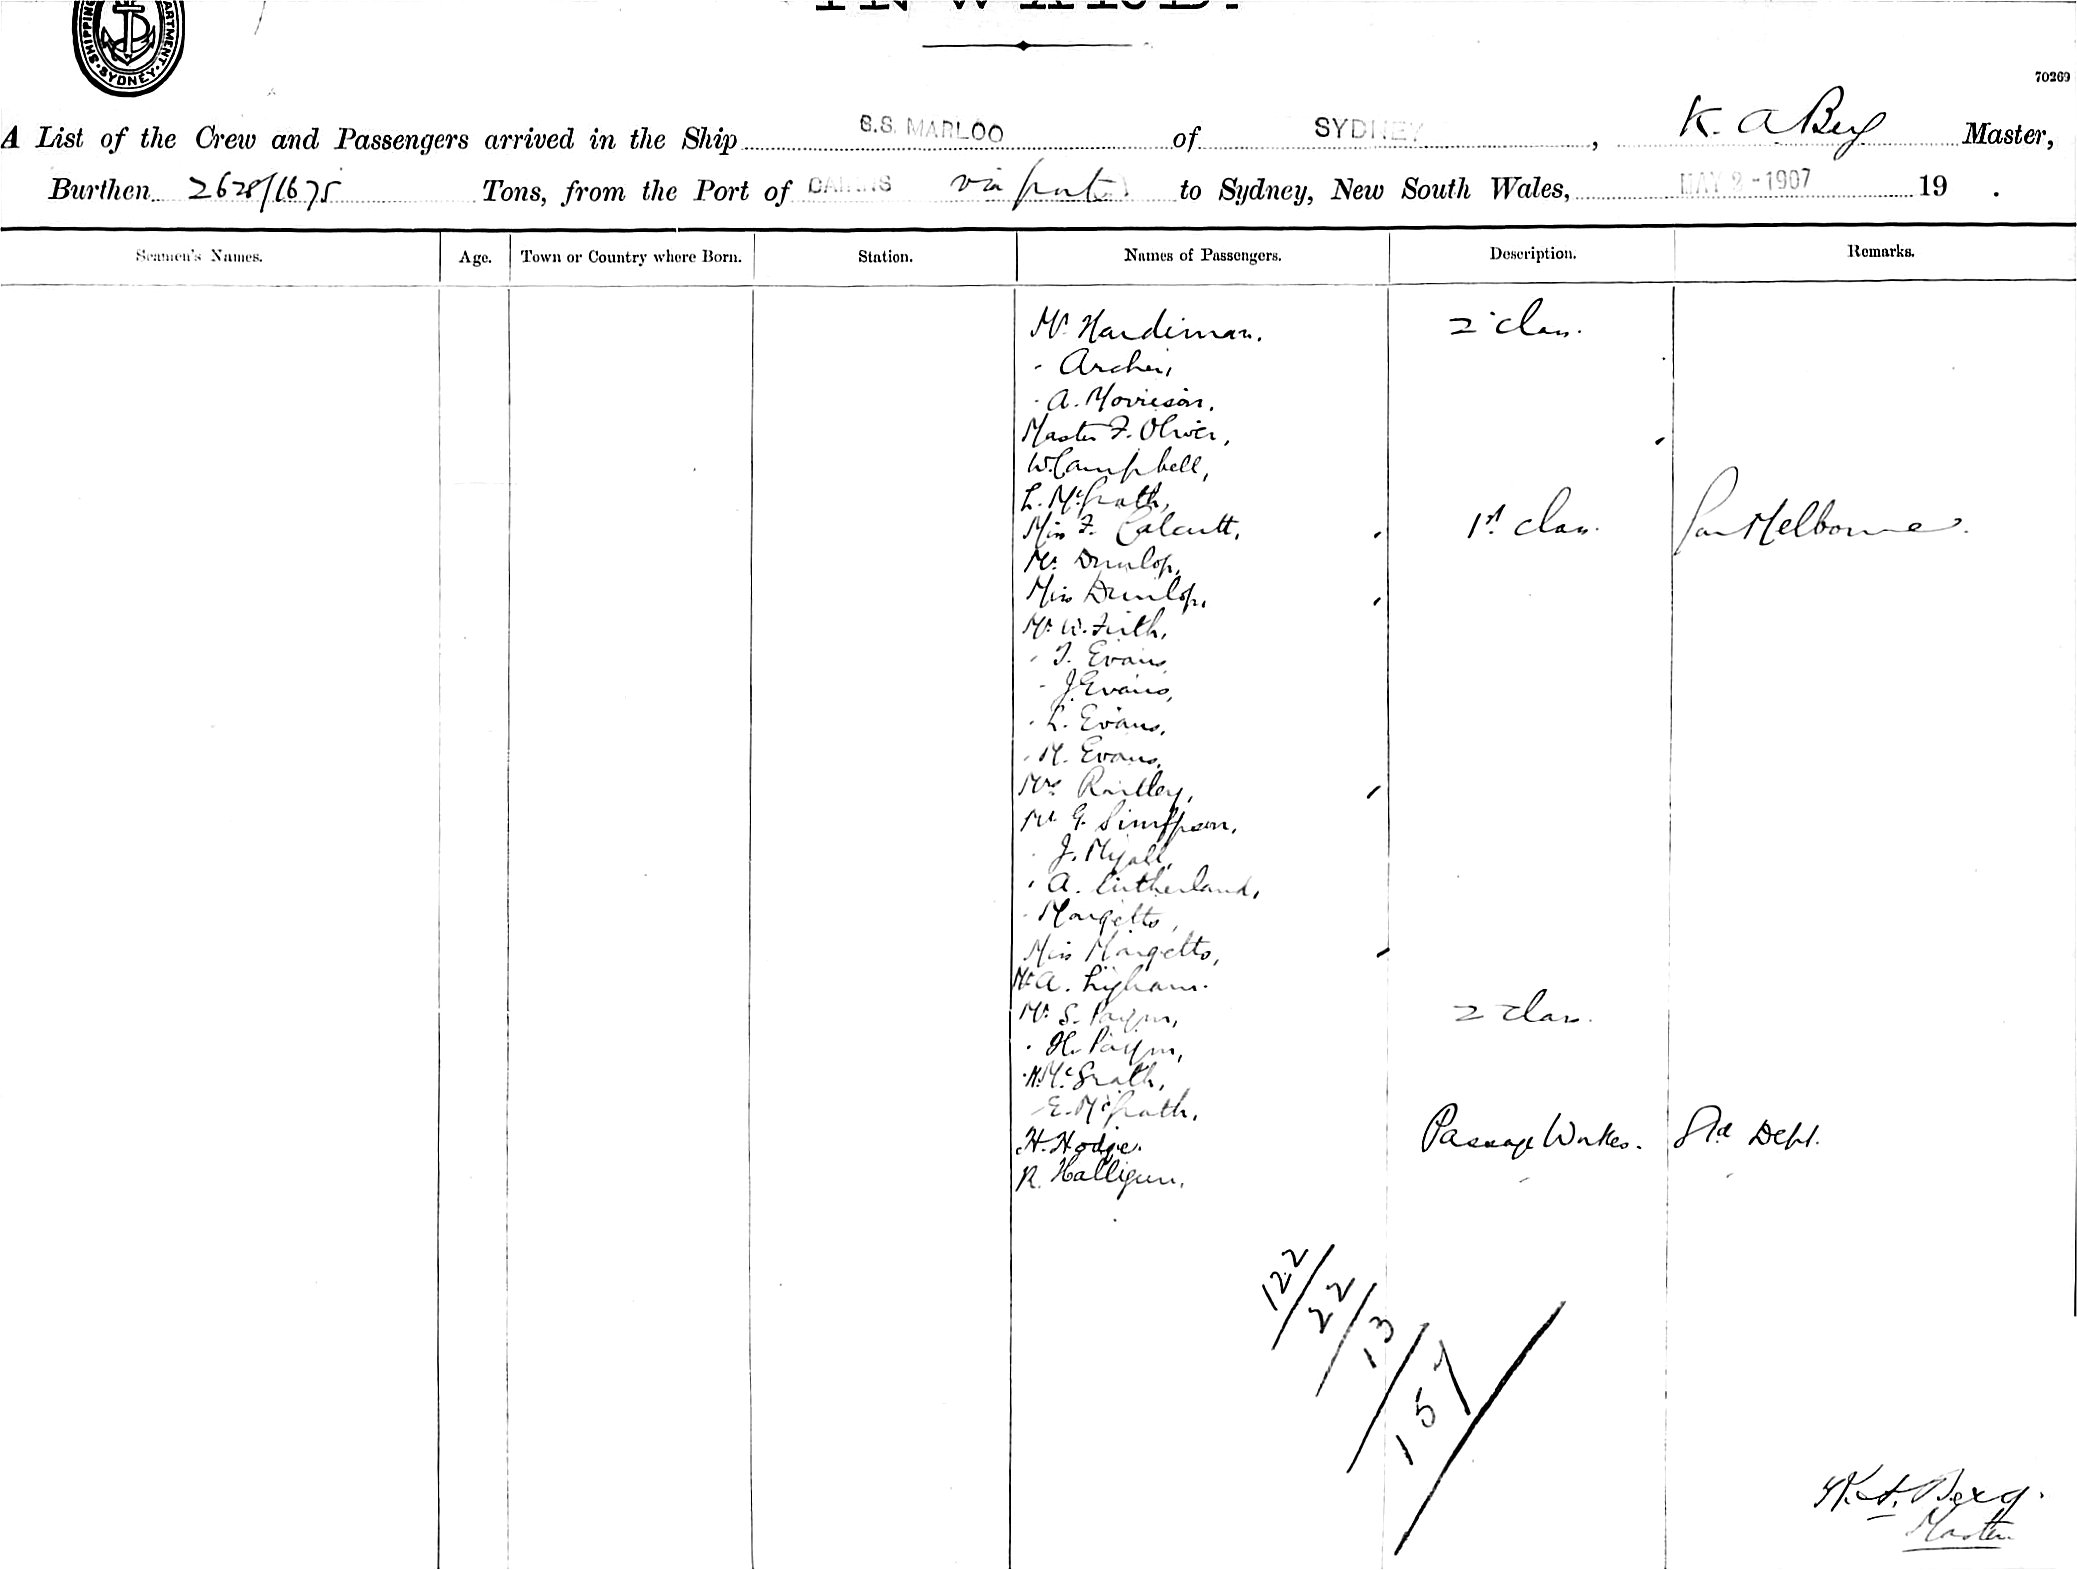 INWARD.
SHIPPING DEPARTMENT SYDNEY
70269
A List of the Crew and Passengers arrived in the Ship S.S. MARLOO of SYDNEY, K. A Berg Master,
Burthen 2628/1675 Tons, from the Port of CAIRNS via ports to Sydney, New South Wales, MAY 2 - 1907 19 .
Seamen's Names. Age. Town or Country where Born. Station. Names of Passengers. Description. Remarks.
Mr. Hardiman. 2 class.
" Archer,
" A. Morrison,
Master F. Oliver,
W. Campbell,
L. McGrath,
Miss F. Calcutt, 1st class. for Melbourne.
Mr. Dunlop,
Miss Dunlop,
Mr. W. Firth,
" T. Evans
" J. Evans,
" L. Evans,
" M. Evans,
Mrs
Mr. G. Simpson,
" J. Myall,
" A. Sutherland,
" Margetts,
Miss Margetts,
Mr A. Higham.
Mr. S. 2 class.
" H.
" H. McGrath,
" E. McGrath,
H. Hodge. Passage Workers. Std Dept.
R. Halligan. " "
122
22
13
157
K. A. Berg.
Master